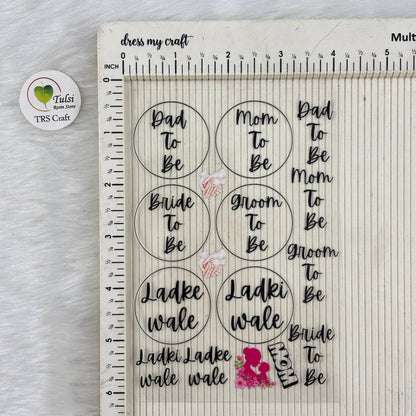 dress my craft
Multi
INCH
1
2
3
4
5
0
1
2
3
4
5
6
Tulsi
Resin Store
TRS Craft
Dad
To
Be
Mom
To
Be
Dad
To
Be
Bride
To
Be
Groom
To
Be
Mom
To
Be
Ladke
wale
Ladki
wale
Groom
To
Be
Ladki
wale
Ladke
wale
MOM
Bride
To
Be